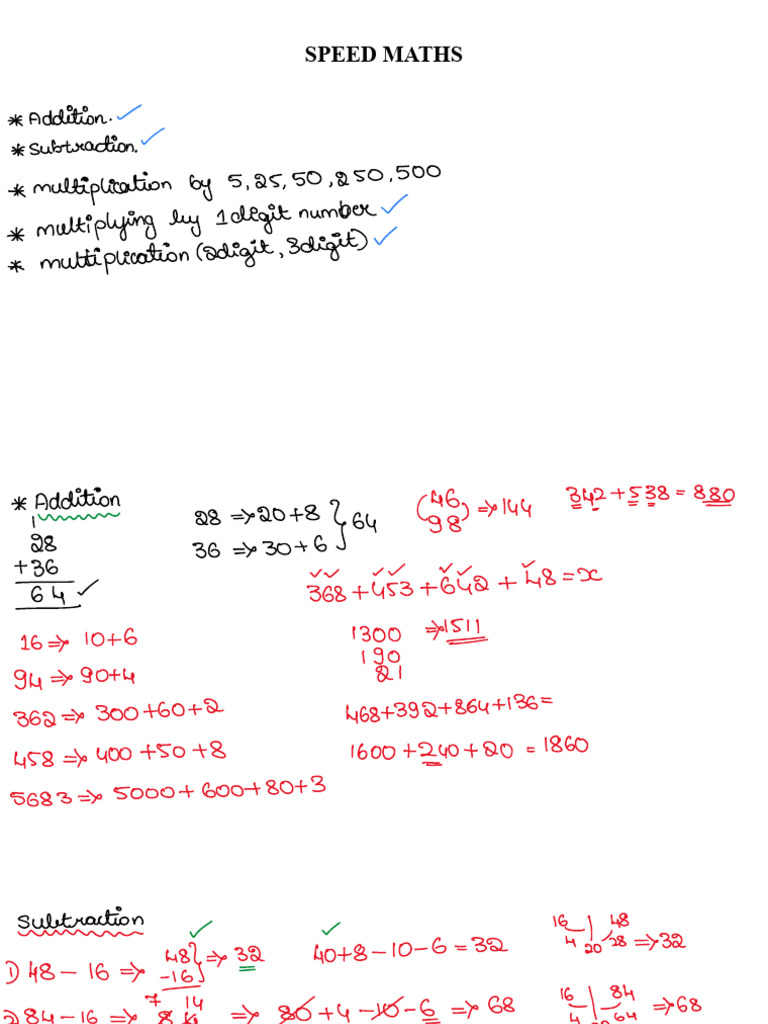 SPEED MATHS
* Addition.
* Subtraction.
* multiplication by 5, 25, 50, 250, 500
* multiplying by 1 digit number
* multiplication (2digit, 3digit)
* Addition
1
28
+36
64
28 ⇒ 20+8
36 ⇒ 30+6
} 64
(46
98) ⇒ 144
342+538 = 880
368+453+642+48=x
1300 ⇒ 1511
190
21
16 ⇒ 10+6
94 ⇒ 90+4
362 ⇒ 300+60+2
458 ⇒ 400+50+8
5683 ⇒ 5000+600+80+3
468+392+864+136=
1600+240+20 = 1860
Subtraction
1) 48-16 ⇒ 48
-16 } ⇒ 32
40+8-10-6 = 32
16 | 48
4 20 28 ⇒ 32
2) 84-16 ⇒ 7 14
8 4 ⇒ 80+4-10-6 ⇒ 68
16 | 84
4 64 ⇒ 68